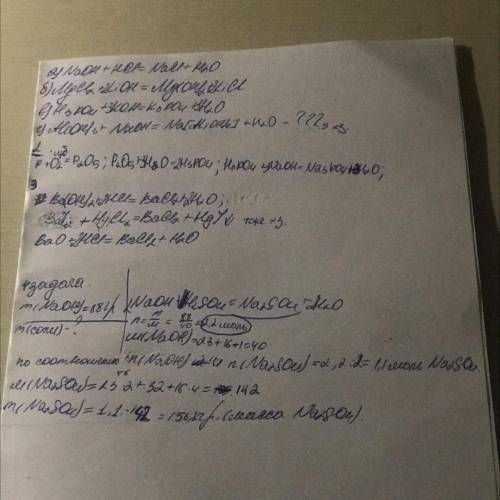 а) NaOH + HCl = NaCl + H2O
б) MgCl2 + LiOH = Mg(OH)2 + LiCl
в) H3PO4 + 3KOH = K3PO4 + 3H2O
г) Al(OH)3 + NaOH = Na[Al(OH)4] + H2O - ???
P + O2 = P2O5; P2O5 + 3H2O = 2H3PO4; H3PO4 + NaOH = Na3PO4 + H2O;
3
Ba(OH)2 + 2HCl = BaCl2 + 2H2O;
+ HgCl2 = BaCl2 + Hg ↓ тоже
BaO + 2HCl = BaCl2 + H2O
4 задача.
m(NaOH) = 88 г
NaOH H2SO4 = Na2SO4 + 2H2O
m(соли) - ?
n = m/M = 88/40 = 2,2 моль
M(NaOH) = 23 + 16 + 1 = 40
по соотношению n(NaOH) и n(Na2SO4) = 2,2 : 2 = 1,1 моль Na2SO4
M(Na2SO4) = 23 · 2 + 32 + 16 · 4 = 142
m(Na2SO4) = 1,1 · 142 = 156,2 г. (масса Na2SO4).